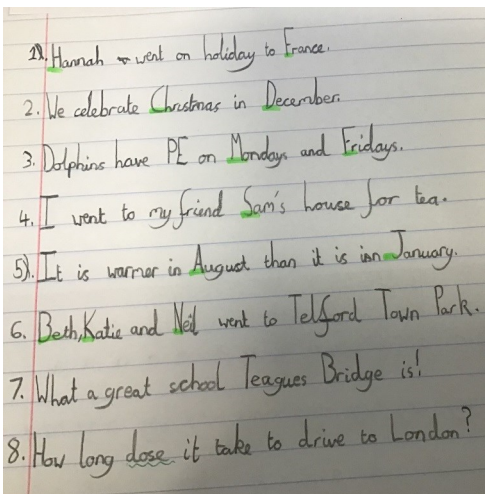 1). Hannah went on holiday to France.
2. We celebrate Christmas in December.
3. Dolphins have PE on Mondays and Fridays.
4. I went to my friend Sam's house for tea.
5). It is warmer in August than it is in January.
6. Beth, Katie and Neil went to Telford Town Park.
7. What a great school Teagues Bridge is!
8. How long dose it take to drive to London?